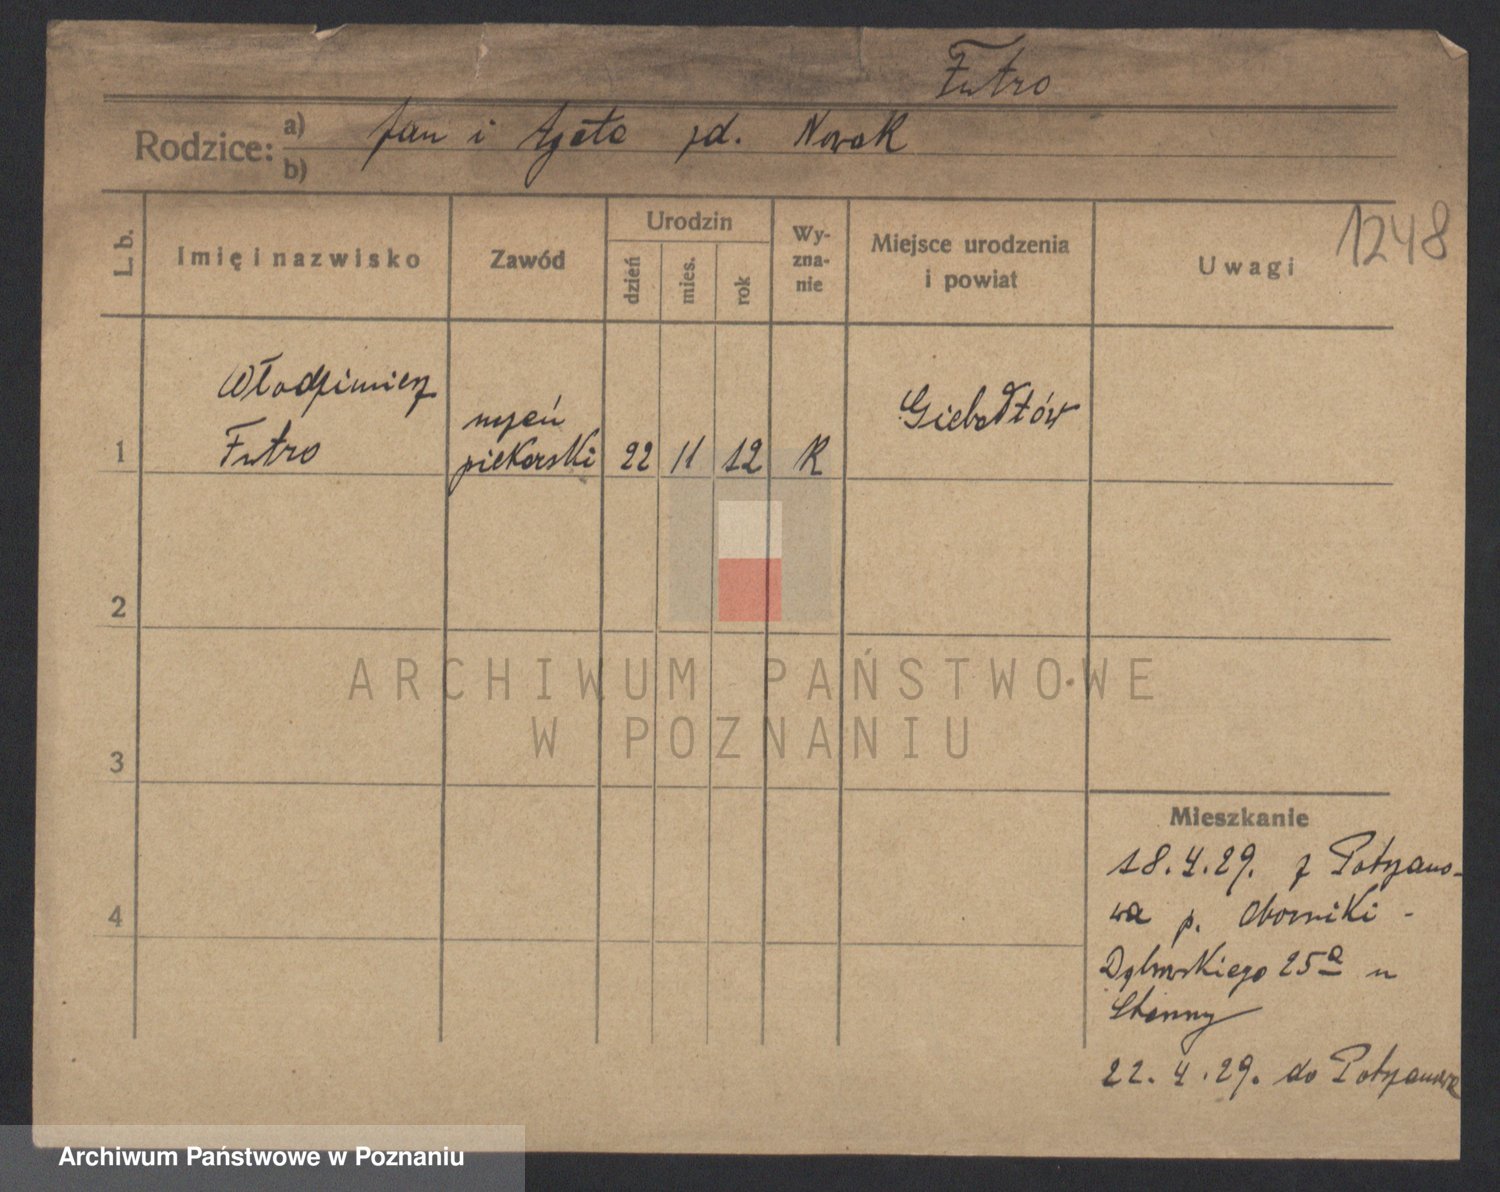 Futro
Rodzice: a) Jan i Agata zd. Nowak
b)
1248
L. b.
Imię i nazwisko
Zawód
Urodzin
dzień
mies.
rok
Wy-
zna-
nie
Miejsce urodzenia
i powiat
Uwagi
1
Włodzimierz
Futro
uczeń
piekarski
22
11
12
K
Giebałtów
2
3
4
Mieszkanie
18.4.29. z Potrzano-
wa p. Oborniki -
Dąbrowskiego 25a u
22.4.29. do Potrzanowa
ARCHIWUM PAŃSTWOWE
W POZNANIU
Archiwum Państwowe w Poznaniu